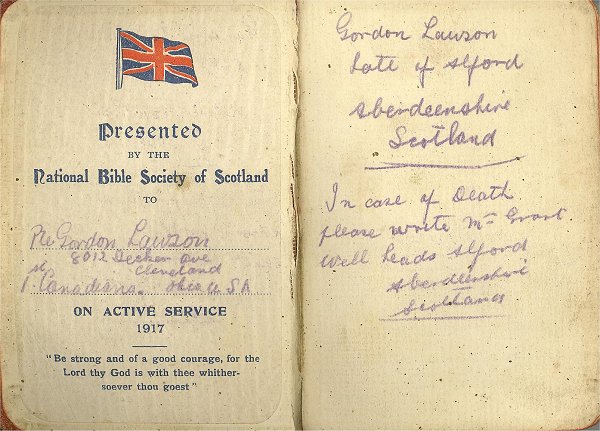 Presented
BY THE
National Bible Society of Scotland
TO
Pte Gordon Lawson
8012 Decker Ave
Cleveland
Canadians. Ohio U SA
ON ACTIVE SERVICE
1917
"Be strong and of a good courage, for the
Lord thy God is with thee whither-
soever thou goest"
Gordon Lawson
Late of Alford
Aberdeenshire
Scotland
In case of Death
please write Mrs Grant
Well heads Alford
Aberdeenshire
Scotland